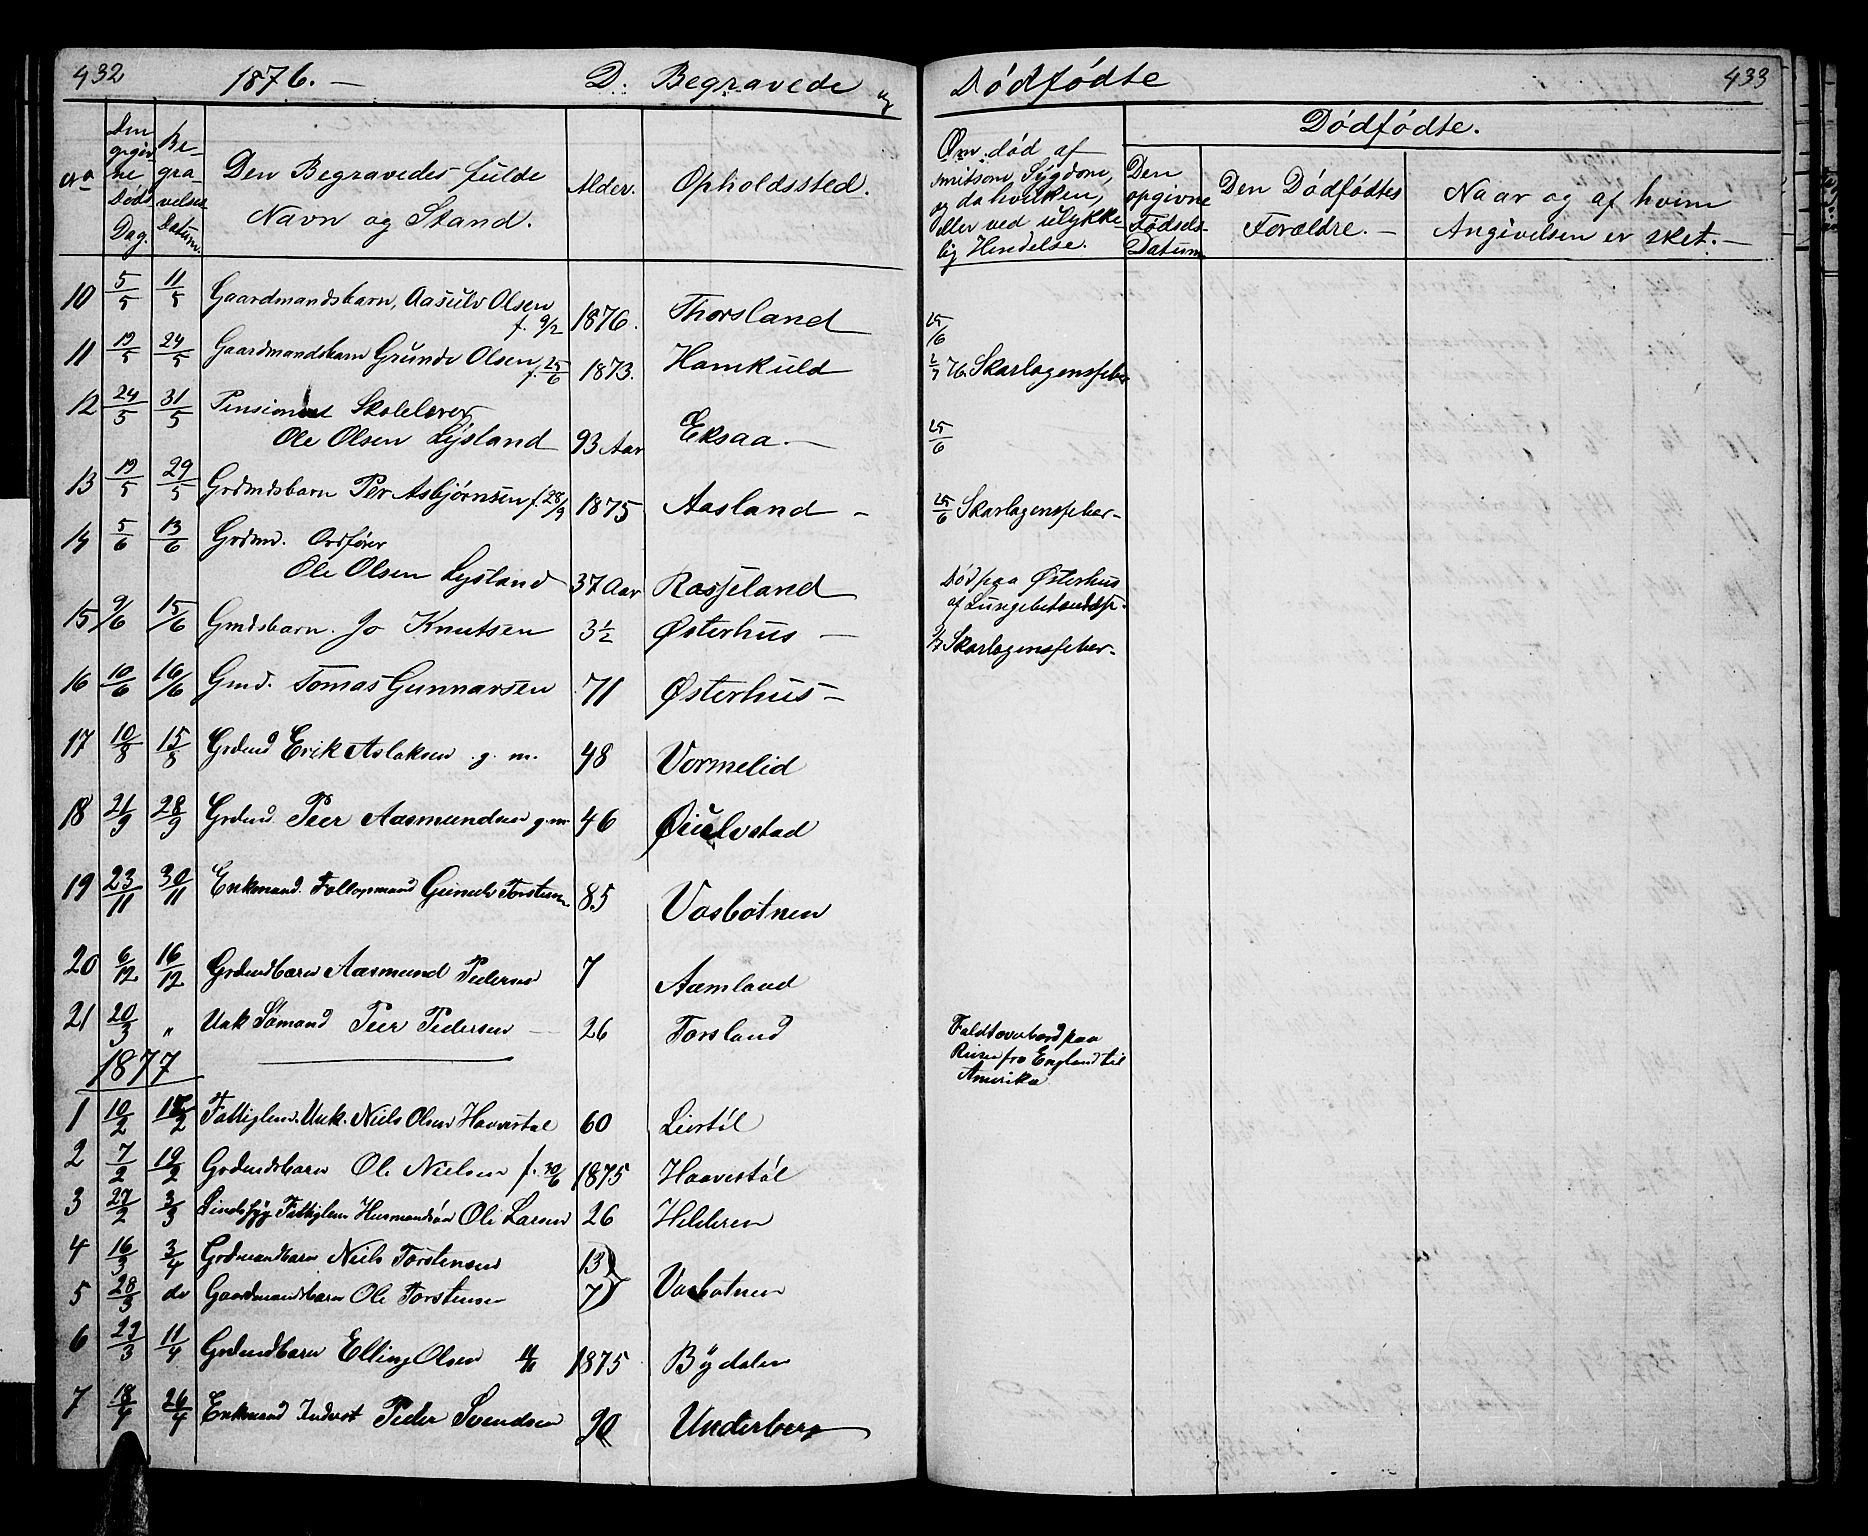 432
1876. — D. Begravede og
Dødfødte
433
No
Den opgivne Døds Dag.
Begravelses Datum.
Den Begravedes fulde
Navn og Stand.
Alder.
Opholdssted.
Om død af
smitsom Sygdom,
og da hvilken,
eller ved ulykke-
lig Hendelse.
Dødfødte.
Den
opgivne
Fødsels-
Datum
Den Dødfødtes
Forældre. —
Naar og af hvem
Angivelsen er sket. —
10 5/5 11/5 Gaardmandsbarn, Aasulv Olsen
f. 9/2 1876. Thorsland
25/6
11 19/5 24/5 Gaardmandsbarn Grunde Olsen f. 25/6 1873. Homkuld
76. Skarlagensfeber
12 24/5 31/5 Pensioneret Skolelærer
Ole Olsen Lysland 93 Aar Eksaa. —
25/6
13 19/5 29/5 Grdmdsbarn Per Asbjørnsen f. 28/9 1875 Aasland —
25/6 Skarlagensfeber —
14 5/6 13/6 Grdmd. Ordfører
Ole Olsen Lysland 37 Aar Rosseland
Død paa Østerhus
af Lungebetændelse.
15 9/6 15/6 Gmdsbarn. Jo Knutsen 3½ Østerhus —
Skarlagensfeber —
16 10/6 16/6 Gmd. Tomas Gunnarsen 71 Østerhus —
17 10/8 15/8 Grdmd Erik Aslaksen g. m. 48 Vormelid
18 21/9 28/9 Grdmd Peer Aasmundsen g. m. 46 Øiulvstad
19 23/11 30/11 Enkmand. Gunuls Torstensen 85 Vasbotnen
20 6/12 16/12 Grdmdbarn Aasmund Pedersen 7 Aamland
21 20/3 " Unk Sømand Peer Pedersen — 26 Torsland
Faldt overbord paa
Reisen fra England til
Amerika
1877
1 10/2 /2 Fattiglem. Unk. Niels Olsen Haavestøl 60 Liestøl
2 7/2 19/2 Grdmdsbarn Ole Nielsen f. 30/6 1875 Haavestøl
3 27/2 3/3 Sindssyg Fattiglem Ole Larsen 26 Hilderen
4 16/3 3/4 Grdmandbarn Niels Torstensen 13
5 28/3 do Gaardmandsbarn Ole Torstensen 7 Vasbotnen
6 29/3 11/4 Grdmdbarn Elling Olsen 1875 Bydalen
7 18/4 26/4 Enkmand Inderst Peder Svendsen 90 Underberg